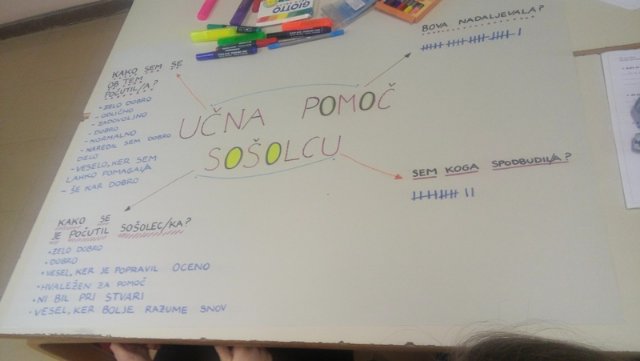 GIOTTO
BOVA NADALJEVALA?
KAKO SEM SE
OB TEM
POČUTIL/A?
- ZELO DOBRO
- ODLIČNO
- ZADOVOLJNO
- DOBRO
- NORMALNO
- NAREDIL SEM DOBRO
DELO
- VESELO, KER SEM
LAHKO POMAGAL/A
- ŠE KAR DOBRO
UČNA POMOČ
SOŠOLCU
SEM KOGA SPODBUDIL/A?
KAKO SE
JE POČUTIL SOŠOLEC/KA?
• ZELO DOBRO
• DOBRO
• VESEL, KER JE POPRAVIL OCENO
• HVALEŽEN ZA POMOČ
• NI BIL PRI STVARI
• VESEL, KER BOLJE RAZUME SNOV